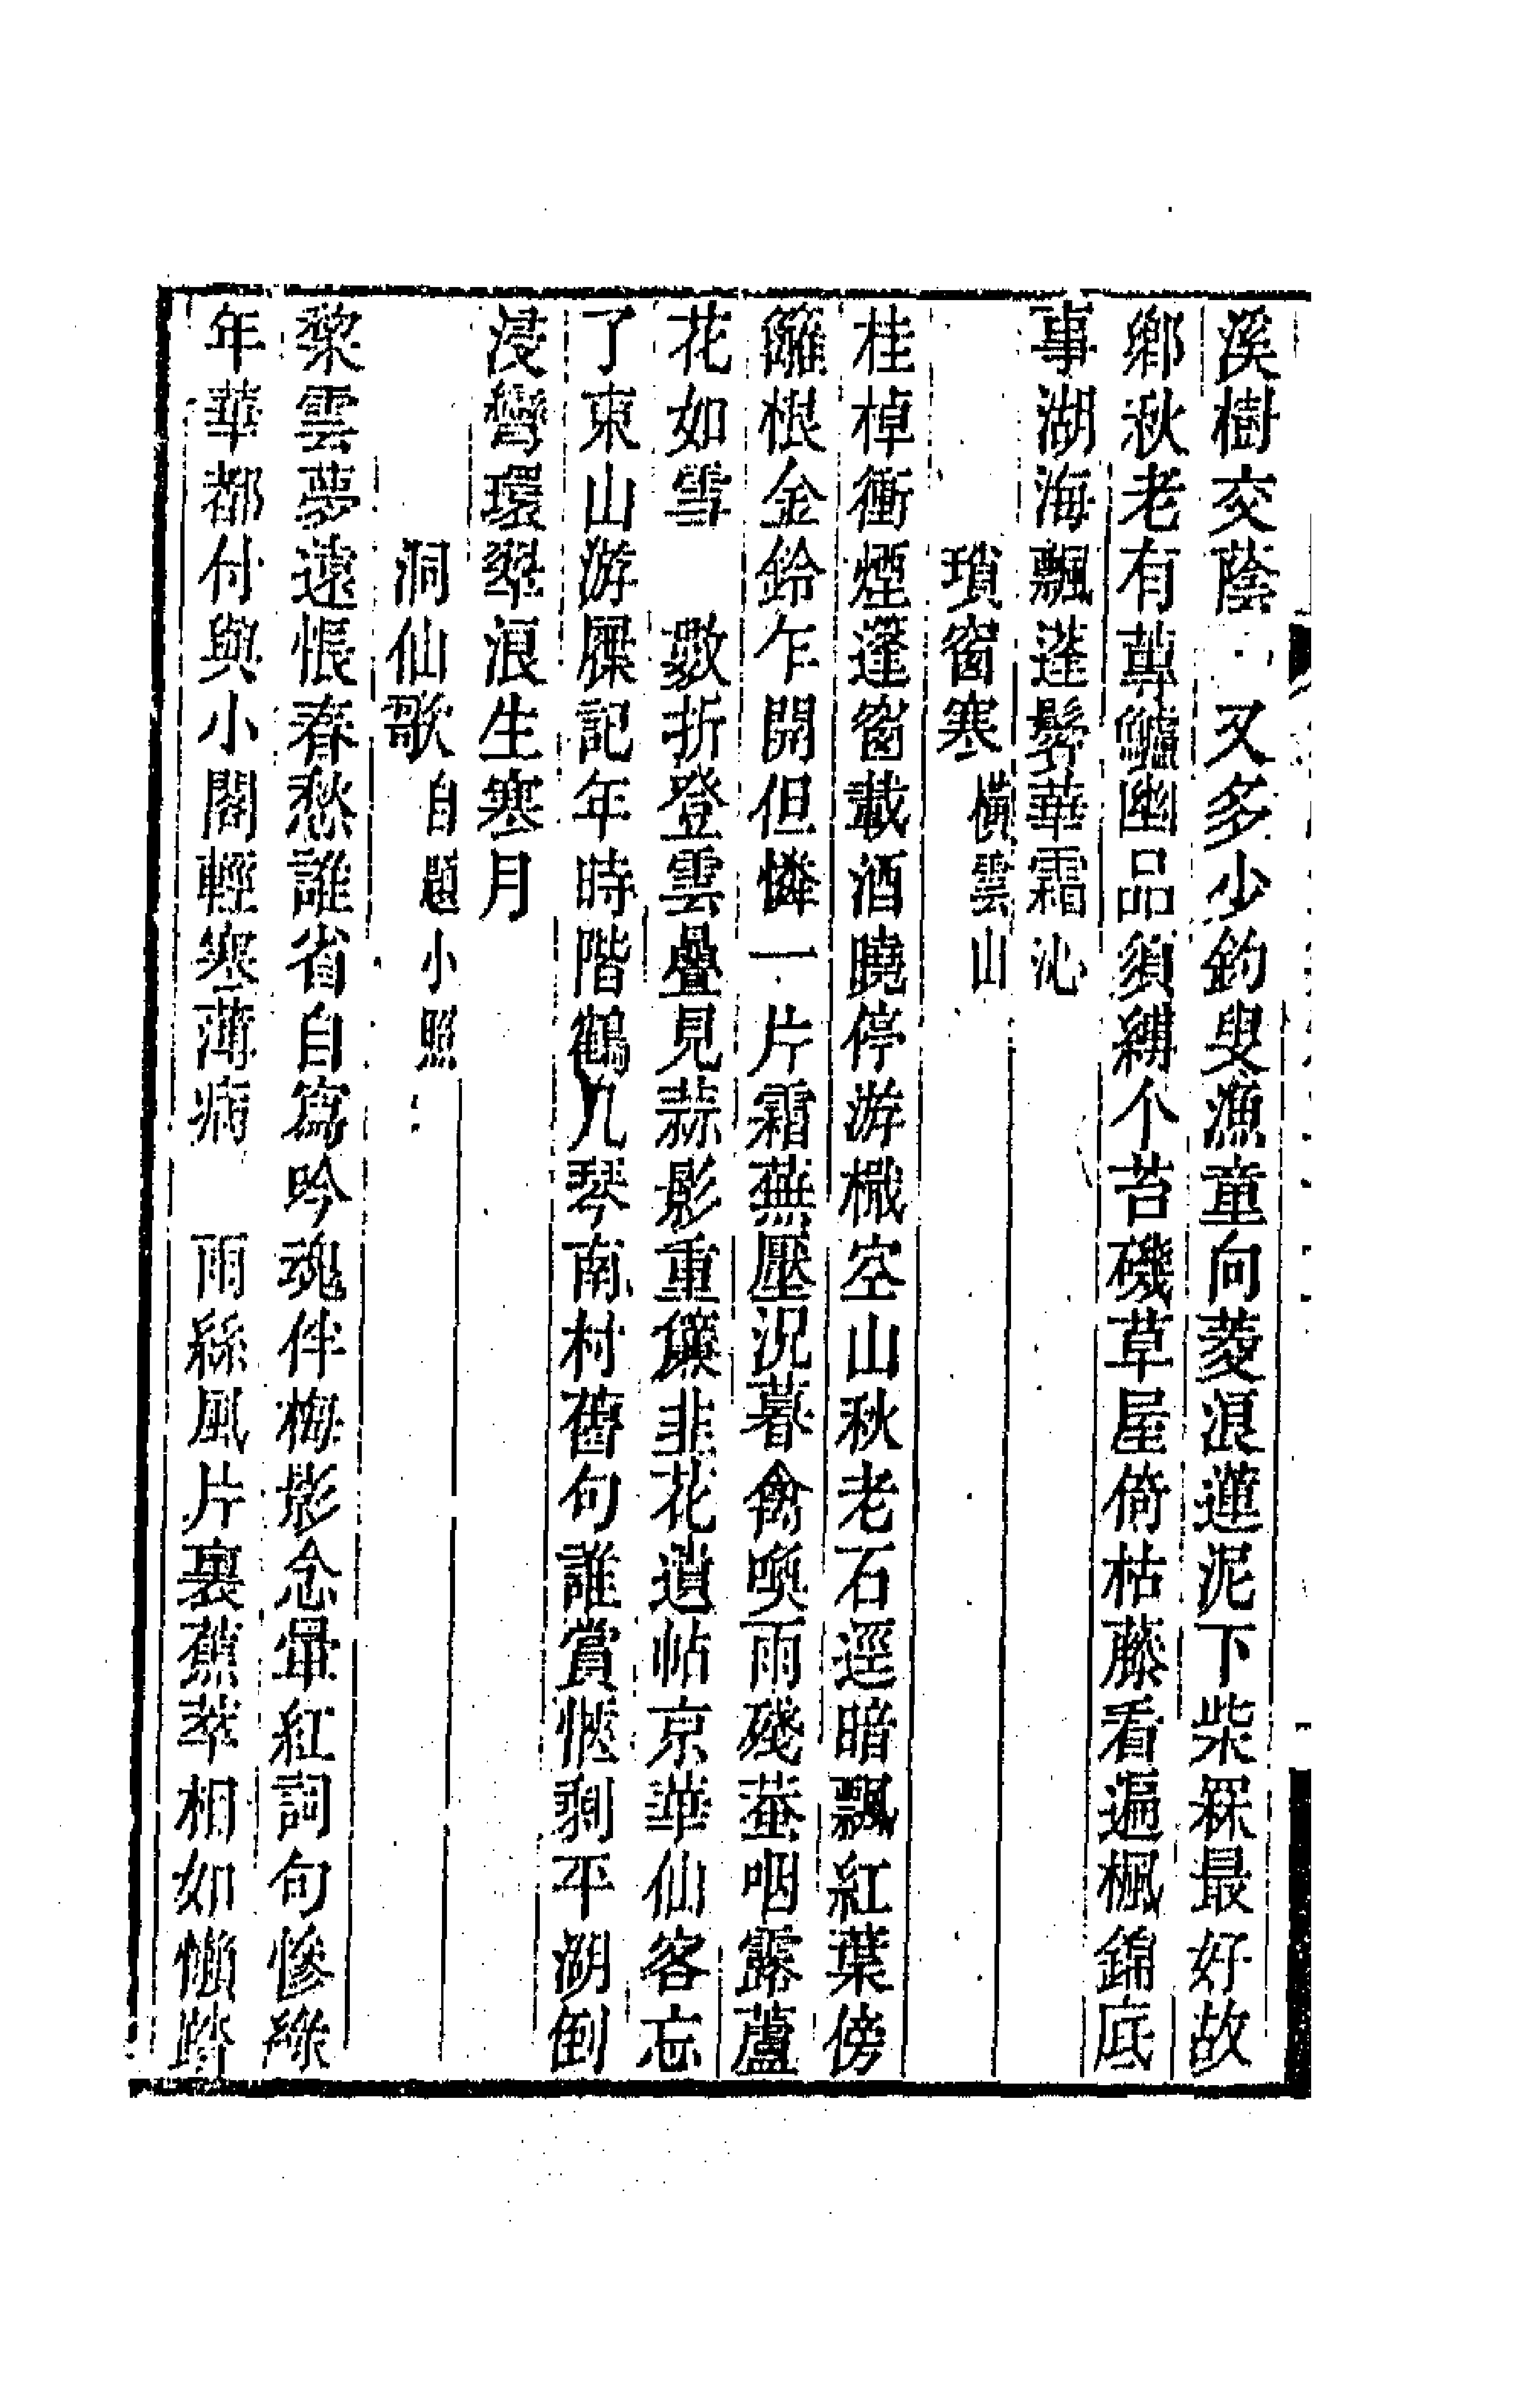 溪樹交蔭　又多少釣叟漁童向菱浪蓮泥下柴罧最好故
鄉秋老有蓴鱸幽品須縛个苕磯草屋倚枯藤看遍楓錦底
事湖海飄蓬鬢華霜沁
瑣窗寒橫雲山
桂棹衝煙蓬窗載酒曉停游檝空山秋老石逕暗飄紅葉傍
籬根金鈴乍開但憐一片霜蕪壓況暮禽喚雨殘蛩咽露蘆
花如雪　數折登雲疊見蒜影重簾韭花遺帖京華仙客忘
了東山游屧記年時階鶴九琴南村舊句誰賞愜剩平湖倒
浸彎環翠浪生寒月
洞仙歌自題小照
黎雲夢遠悵春愁誰省自寫吟魂伴梅影念暈紅詞句慘綠
年華都付與小閣輕寒薄病　雨絲風片裏蕉萃相如懶踏